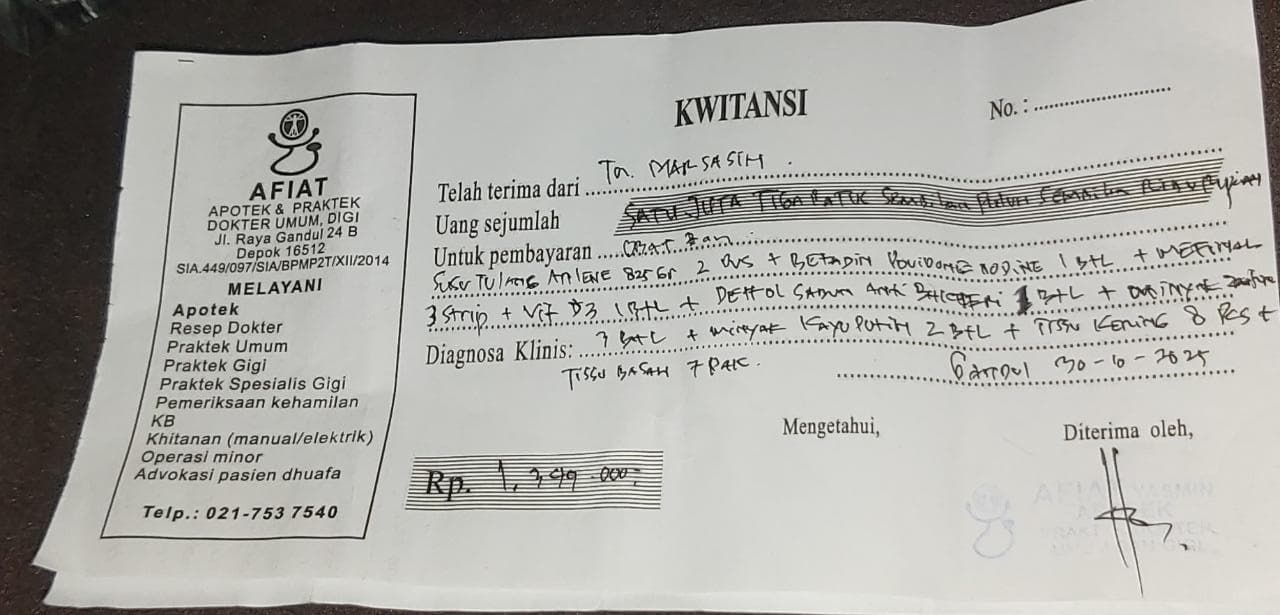 AFIAT
APOTEK & PRAKTEK
DOKTER UMUM, DIGI
Jl. Raya Gandul 24 B
Depok 16512
SIA.449/097/SIA/BPMP2T/XII/2014
MELAYANI
Apotek
Resep Dokter
Praktek Umum
Praktek Gigi
Praktek Spesialis Gigi
Pemeriksaan kehamilan
KB
Khitanan (manual/elektrik)
Operasi minor
Advokasi pasien dhuafa
Telp.: 021-753 7540
KWITANSI
No. :
Telah terima dari Tn. MARSASIH.
Uang sejumlah SATU JUTA TIGA RATUS Sembilan Puluh Sembilan Ribu Rupiah
Untuk pembayaran
Susu TULANG ANLENE 825 Gr 2 DUS + BETADIN POVIDONE IODINE 1 BTL + MEFINAL
3 strip + Vit D3 1 BTL + DETTOL SABUN Anti 1 BTL +
Diagnosa Klinis: 3 BTL + minyak KAYU PUTIH 2 BTL + TISSU KERING 8 PCS +
TISSU BASAH 7 PAK.
Gandul 30-10-2025
Mengetahui,
Diterima oleh,
Rp. 1,399.000;
AFIAT YASMIN
APOTEK